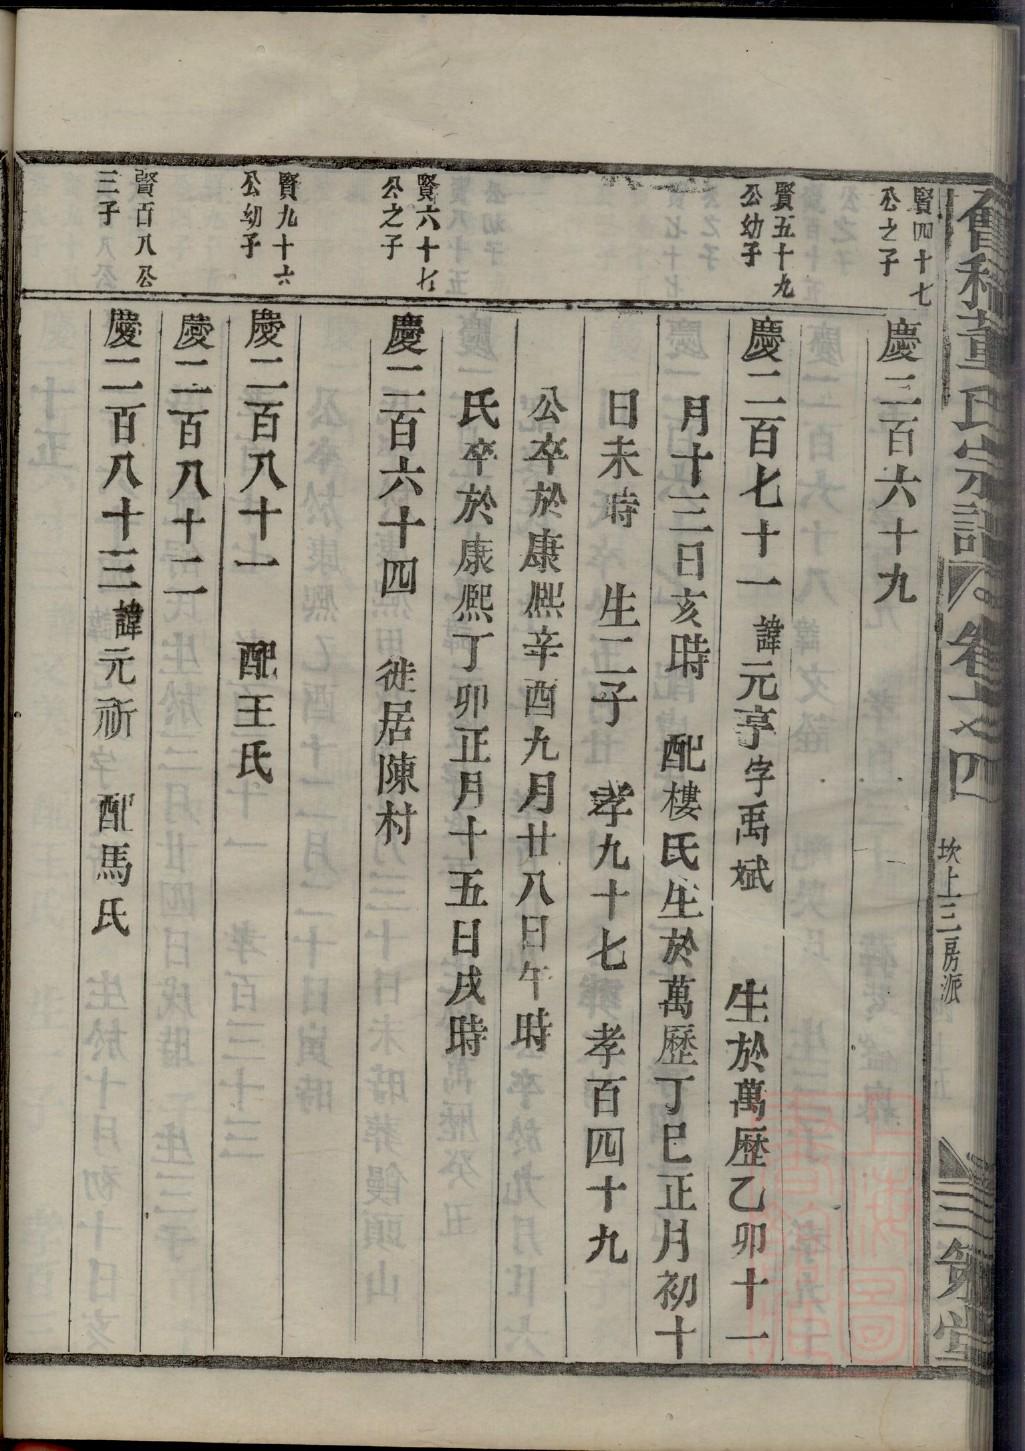 會稽董氏宗譜
卷十之四
坎上三房派
三策堂
賢四十七
公之子
慶二百六十九
賢五十九
公幼子
慶二百七十一 諱元亨字禹斌 生於萬歷乙卯十一
月十三日亥時 配樓氏生於萬歷丁巳正月初十
日未時 生二子 孝九十七 孝百四十九
公卒於康熙辛酉九月廿八日午時
氏卒於康熙丁卯正月十五日戌時
賢六十七
公之子
慶二百六十四 徙居陳村
賢九十六
公幼子
慶二百八十一 配王氏
慶二百八十二
賢百八公
三子
慶二百八十三諱元祈 配馬氏